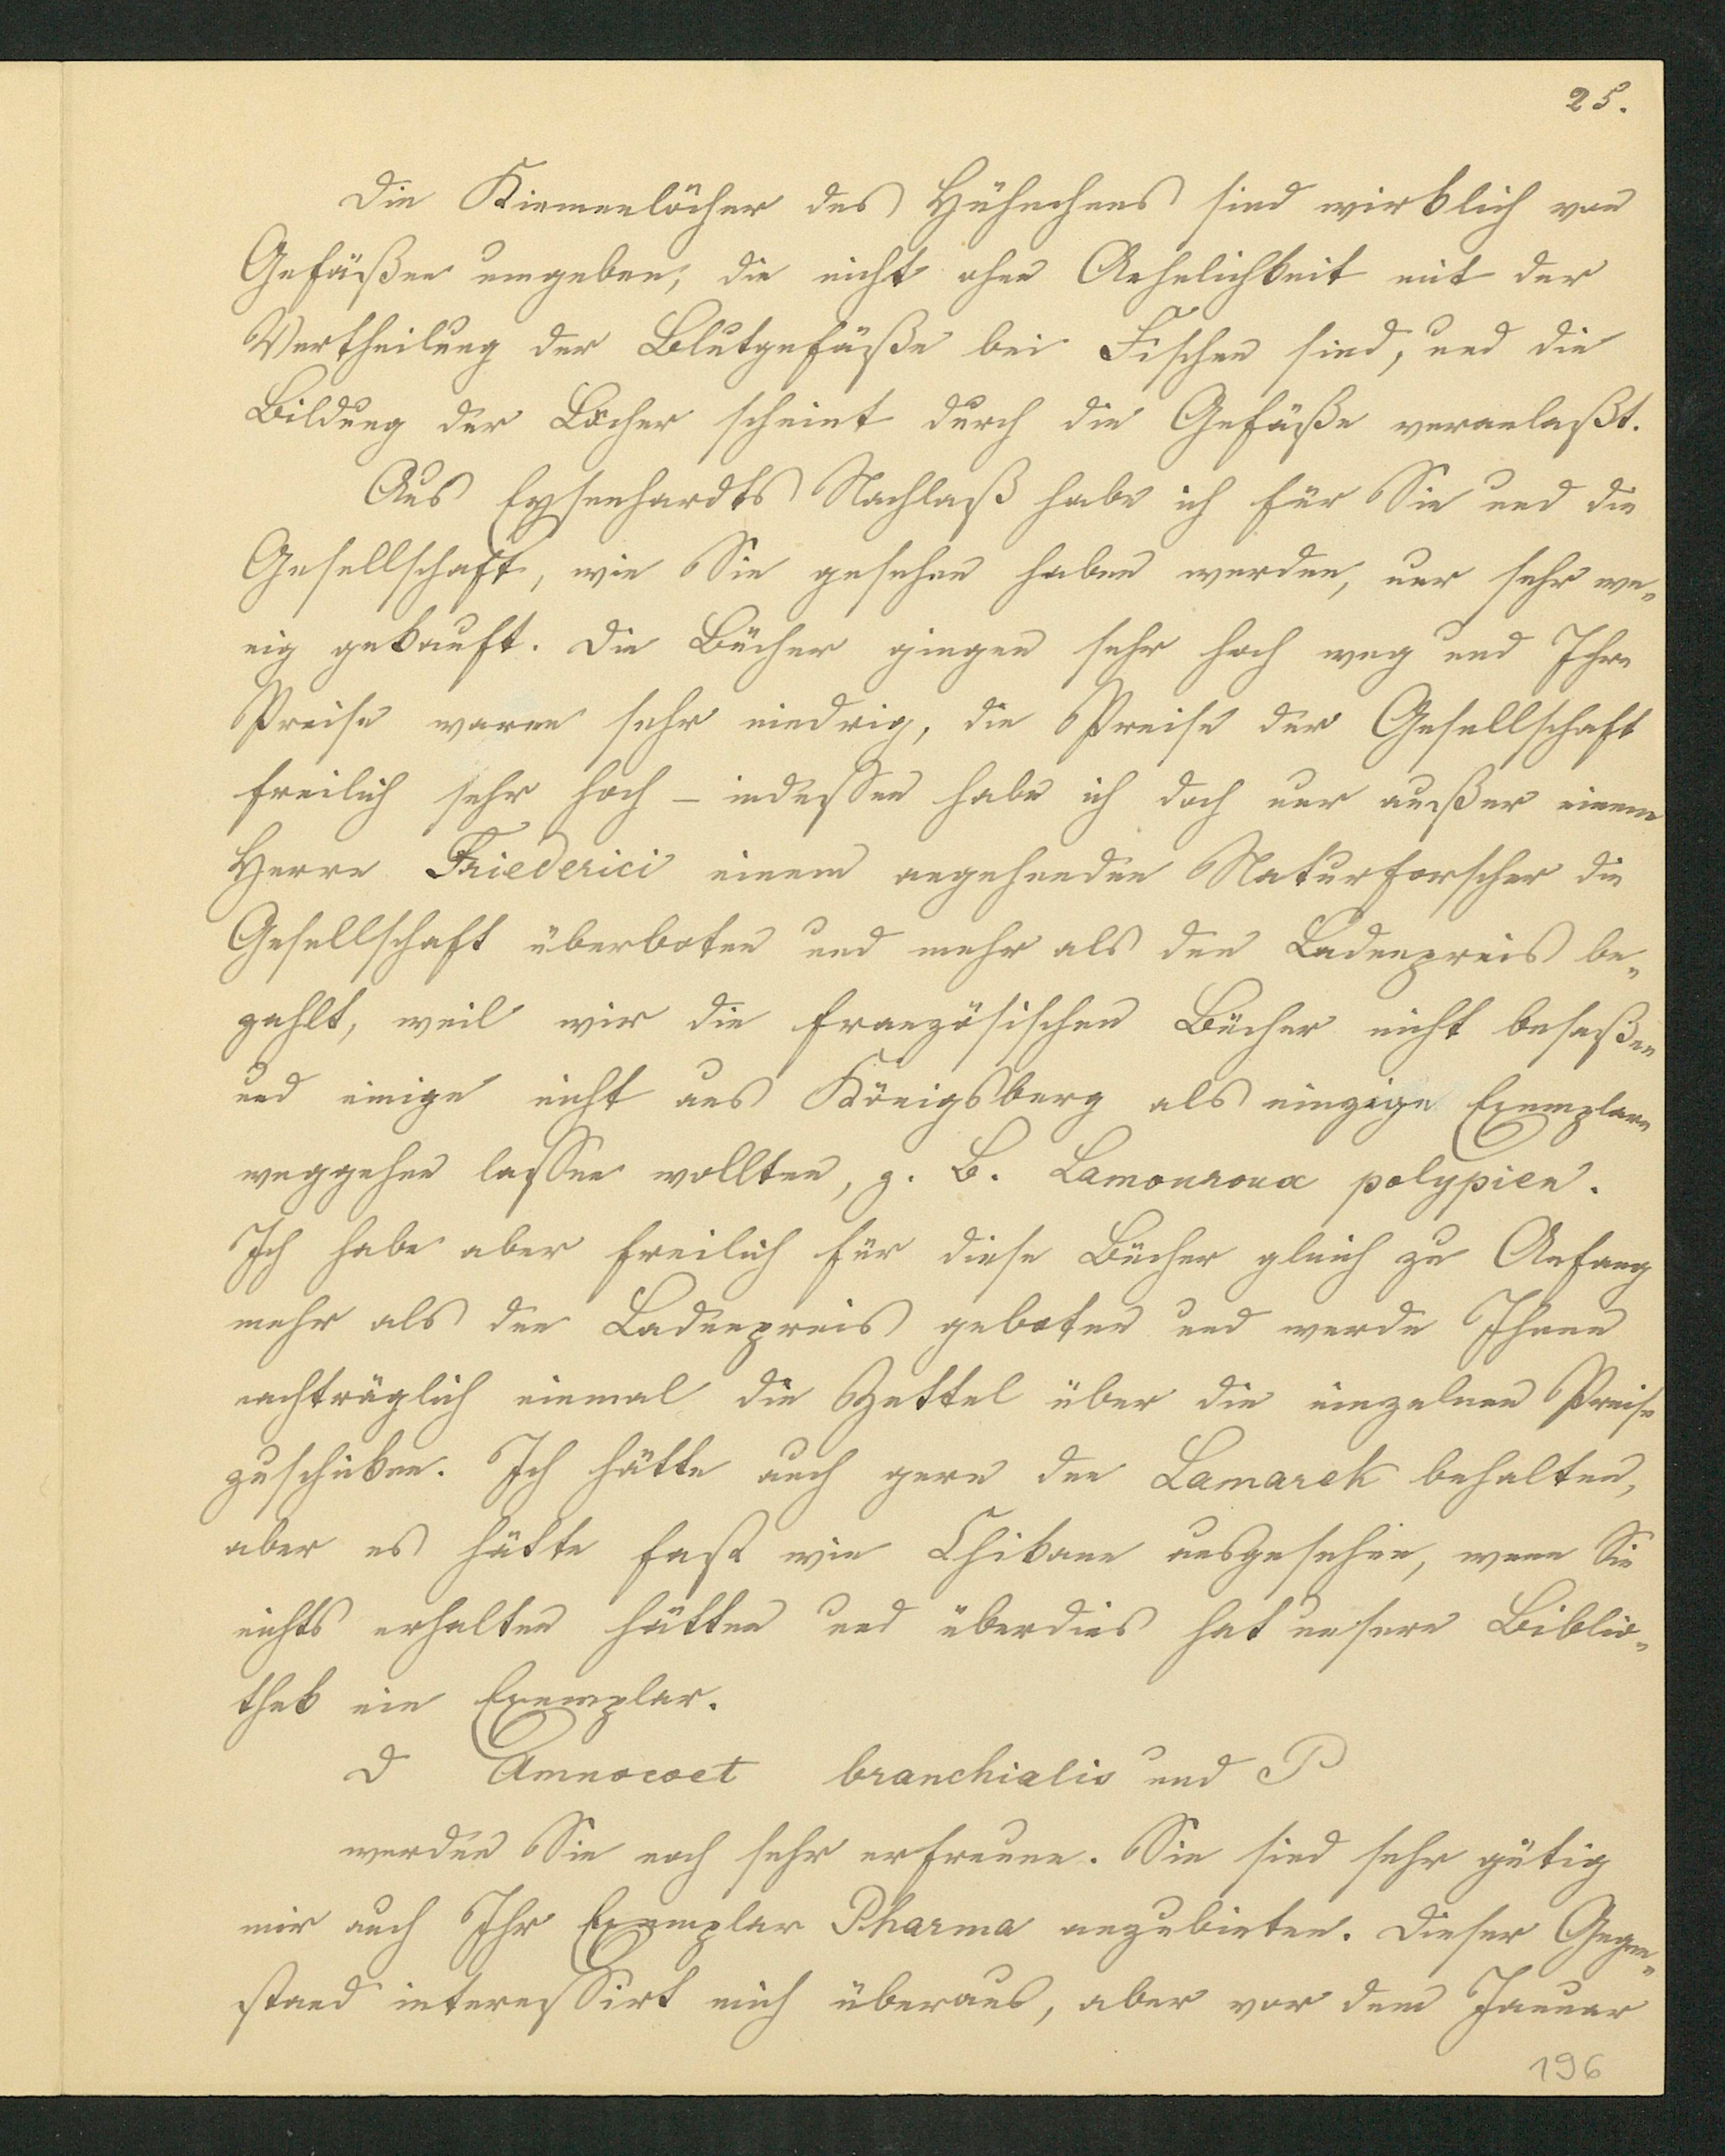 25.
Die Kiemenlöcher des Hühnchens sind wirklich von
Gefäßen umgeben, die nicht ohne Aehnlichkeit mit der
Vertheilung der Blutgefäße bei Fischen sind, und die
Bildung der Löcher scheint durch die Gefäße veranlaßt.
Aus Eysenhardts Nachlaß habe ich für Sie und die
Gesellschaft, wie Sie gesehen haben werden, nur sehr we-
nig gekauft. Die Bücher gingen sehr hoch weg und Ihre
Preise waren sehr niedrig, die Preise der Gesellschaft
freilich sehr hoch – indessen habe ich doch nur außer einem
Herrn Friederici einem angehenden Naturforscher die
Gesellschaft überboten und mehr als den Ladenpreis be-
zahlt, weil wir die französischen Bücher nicht besaßen
und einige nicht aus Königsberg als einzige Exemplare
weggehen lassen wollten, z. B. Lamouroux polypien.
Ich habe aber freilich für diese Bücher gleich zu Anfang
mehr als den Ladenpreis geboten und werde Ihnen
nachträglich einmal die Zettel über die einzelnen Preise
zuschicken. Ich hätte auch gern den Lamarck behalten,
aber es hätte fast wie Chikane ausgesehen, wenn Sie
nichts erhalten hätten und überdies hat unsere Biblio-
thek ein Exemplar.
D Amnocoet branchialis und P
werden Sie noch sehr erfreuen. Sie sind sehr gütig
mir auch Ihr Exemplar Pharma anzubieten. Dieser Gegen-
stand interessirt mich überaus, aber vor dem Januar
196